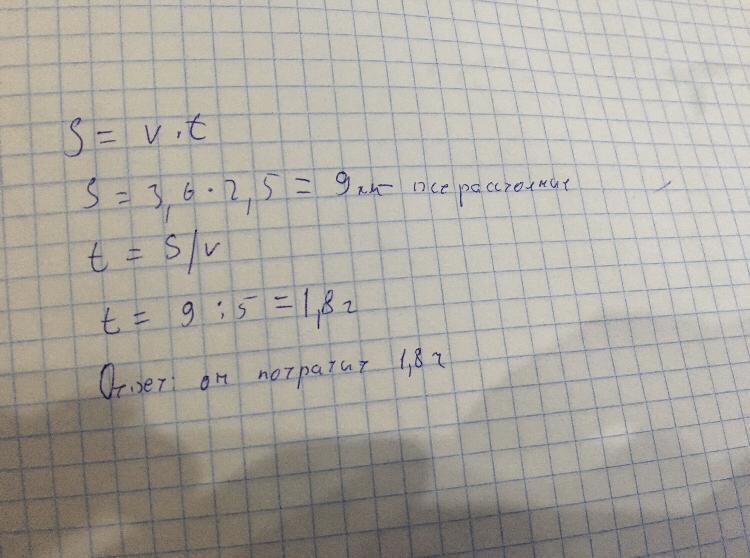 S = v · t
S = 3,6 · 2,5 = 9 км все расстояние
t = S/v
t = 9 : 5 = 1,8 ч
Ответ: он потратит 1,8 ч